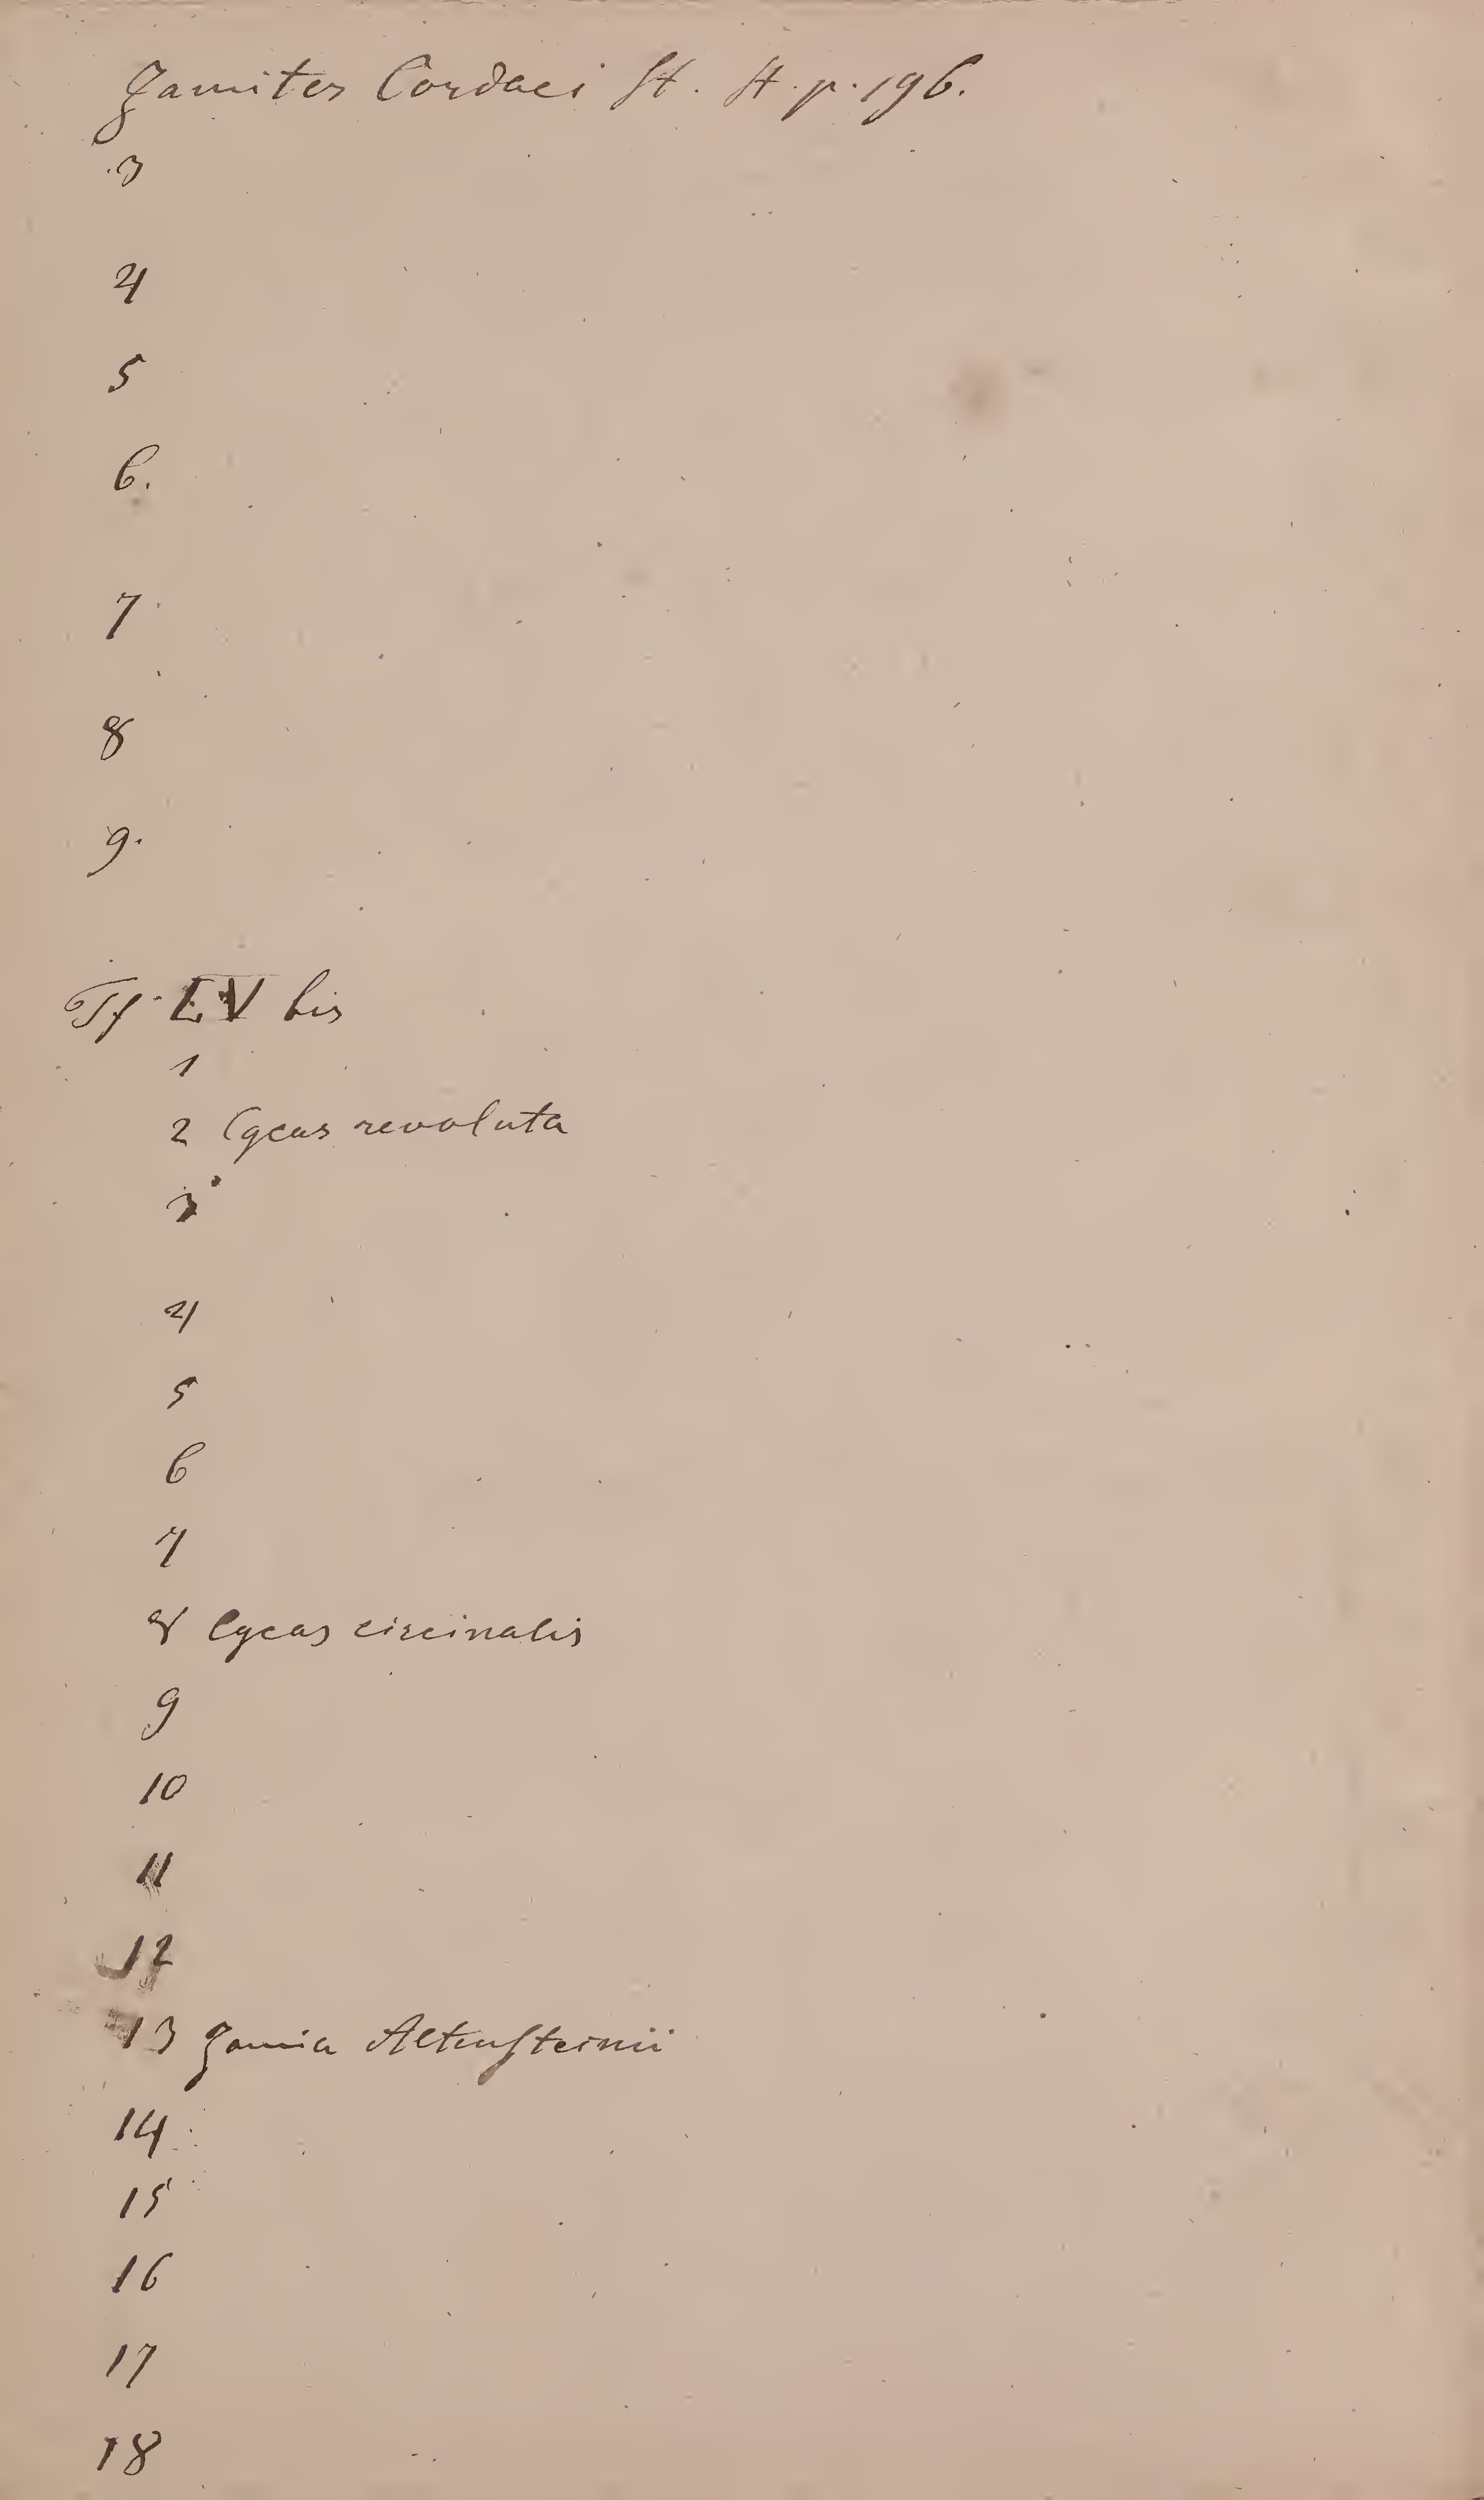 Zamites Cordaei St. St. p. 196.
3
4
5
6.
7
8
9.
Tf. LV bis
1
2 Cycas revoluta
3
4
5
6
7
8 Cycas circinalis
9
10
11
12
13 Zamia Altensteinii
14
15
16
17
18